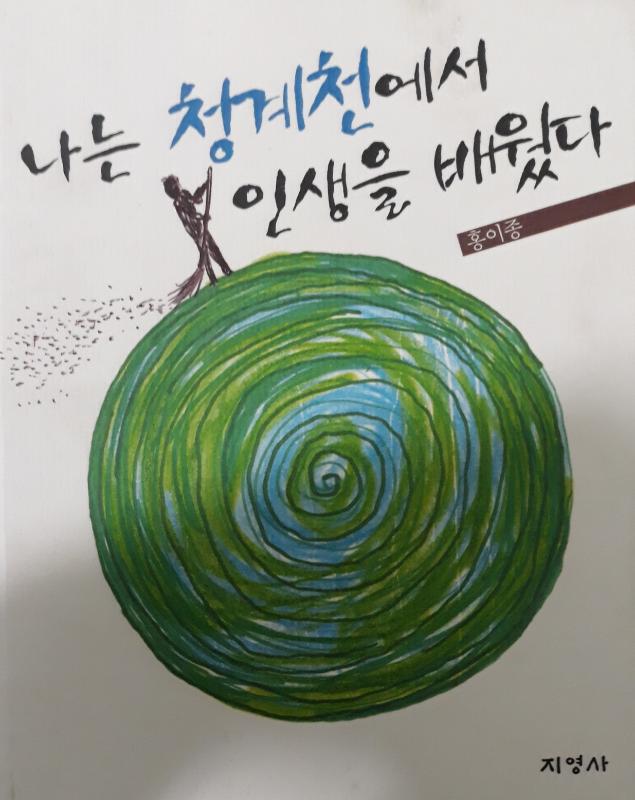 나는 청계천에서
인생을 배웠다
홍이종
지영사